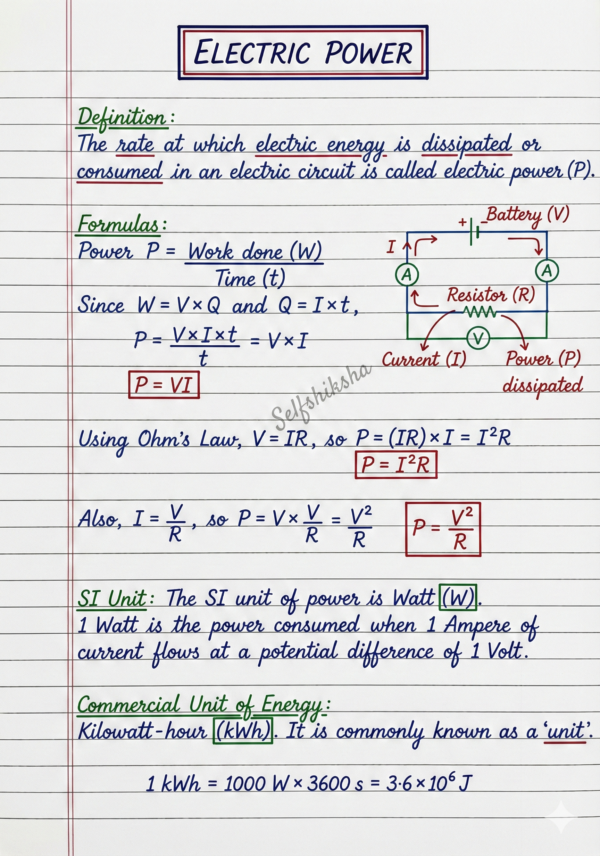 ELECTRIC POWER
Definition:
The rate at which electric energy is dissipated or
consumed in an electric circuit is called electric power (P).
Formulas:
Power P = Work done (W)
Time (t)
Since W = V×Q and Q = I×t,
P = V×I×t / t = V×I
P = VI
+ − Battery (V)
I
A
A
Resistor (R)
V
Current (I)
Power (P)
dissipated
Selfshiksha
Using Ohm's Law, V = IR, so P = (IR)×I = I²R
P = I²R
Also, I = V/R, so P = V × V/R = V²/R
P = V²/R
SI Unit: The SI unit of power is Watt (W).
1 Watt is the power consumed when 1 Ampere of
current flows at a potential difference of 1 Volt.
Commercial Unit of Energy:
Kilowatt-hour (kWh). It is commonly known as a ‘unit’.
1 kWh = 1000 W × 3600 s = 3·6 × 10⁶ J